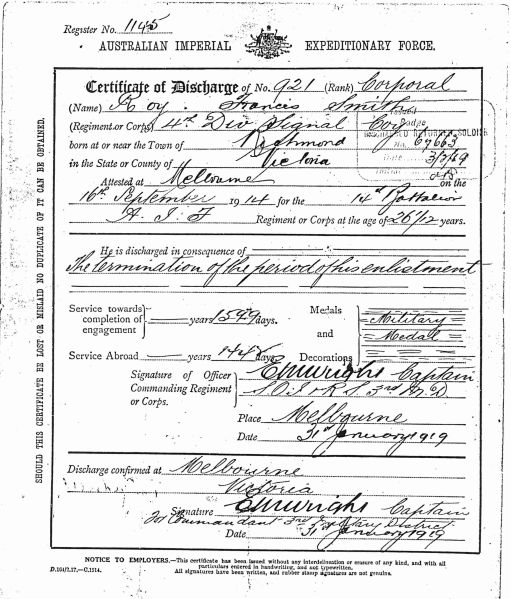 Register No. 1145
AUSTRALIAN IMPERIAL EXPEDITIONARY FORCE.
Certificate of Discharge of No. 921 (Rank) Corporal
(Name) Roy Francis Smith
(Regiment or Corps) 4th Div Signal Coy
Issued
Badge
DISCHARGED RETURNED SOLDIER
No. 67663
Date 3/7/19
born at or near the Town of Richmond
in the State or County of Victoria
Attested at Melbourne on the
16th September 1914 for the 14th Battalion
A. I. F Regiment or Corps at the age of 26 1/12 years.
He is discharged in consequence of
The termination of the period of his enlistment
Service towards completion of engagement years 1599 days.
Medals and Decorations Military Medal
Service Abroad years days
Signature of Officer Commanding Regiment or Corps. Captain
3rd M.D
Place Melbourne
Date 31st January 1919
Discharge confirmed at Melbourne
Victoria
Signature Captain
for Commandant 3rd Military District
Date 31st January 1919
SHOULD THIS CERTIFICATE BE LOST OR MISLAID NO DUPLICATE OF IT CAN BE OBTAINED.
NOTICE TO EMPLOYERS.—This certificate has been issued without any interlineation or erasure of any kind, and with all
particulars entered in handwriting, and not typewritten.
D.164/7.17.—C.1514. All signatures have been written, and rubber stamp signatures are not genuine.